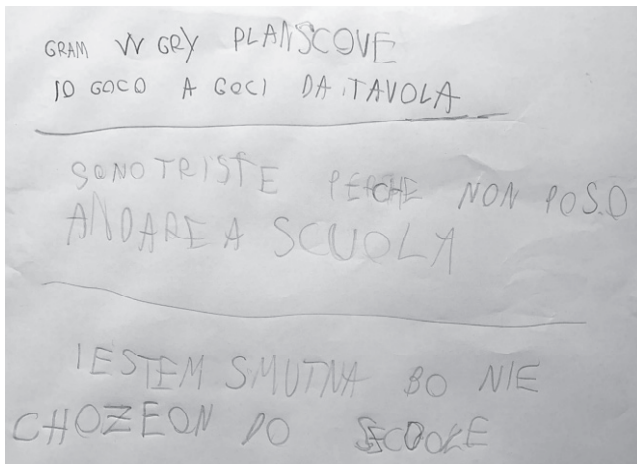 GRAM W GRY PLANSCOVE
IO GOCO A GOCI DA TAVOLA
SONO TRISTE PERCHE NON POSO
ANDARE A SCUOLA
IESTEM SMUTNA BO NIE
CHOZEON DO